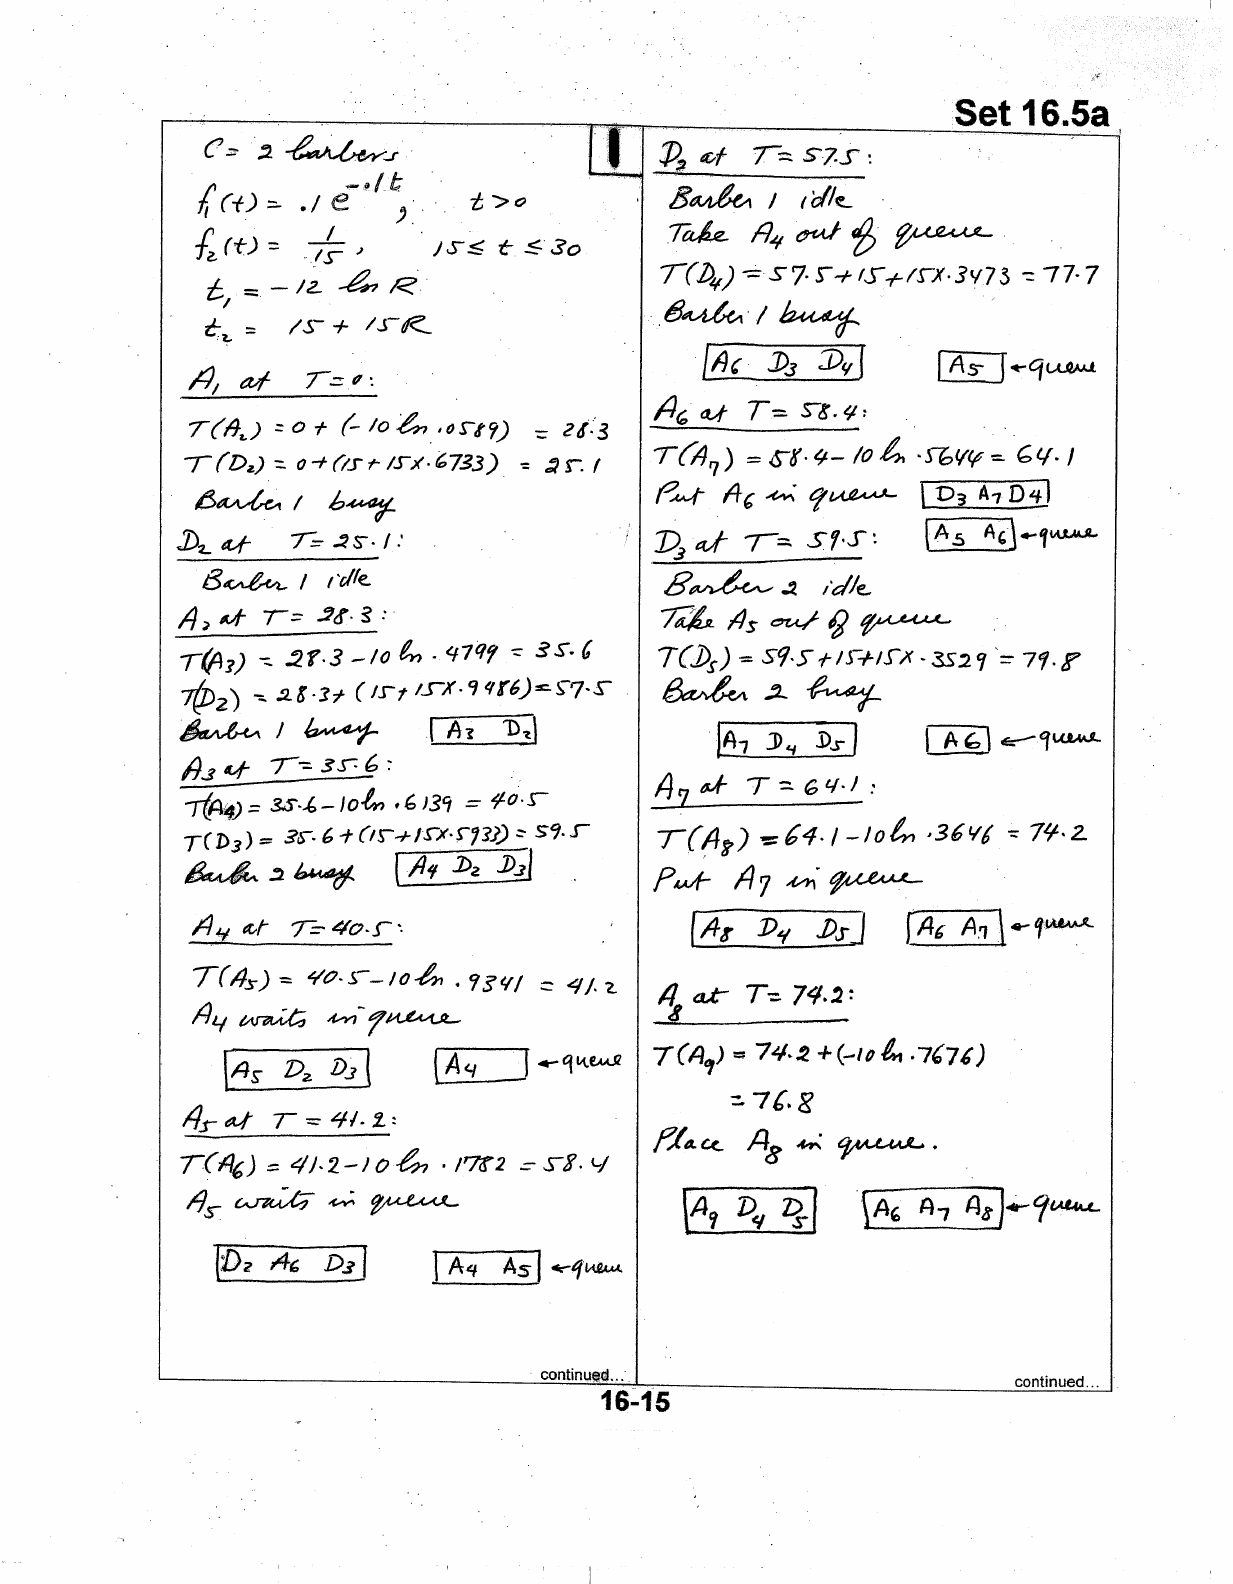 Set 16.5a
C = 2 barbers
1
f₁(t) = .1 e^-.1t, t > 0
f₂(t) = 1/15, 15 ≤ t ≤ 30
t₁ = -12 ln R
t₂ = 15 + 15R
A₁ at T = 0:
T(A₂) = 0 + (-10 ln .0589) = 28.3
T(D₂) = 0 + (15 + 15 x .6733) = 25.1
Barber 1 busy
D₂ at T = 25.1:
Barber 1 idle
A₂ at T = 28.3:
T(A₃) = 28.3 - 10 ln .4799 = 35.6
T(D₂) = 28.3 + (15 + 15 x .9486) = 57.5
Barber 1 busy A₃ D₂
A₃ at T = 35.6:
T(A₄) = 35.6 - 10 ln .6139 = 40.5
T(D₃) = 35.6 + (15 + 15 x .5933) = 59.5
Barber 2 busy A₄ D₂ D₃
A₄ at T = 40.5:
T(A₅) = 40.5 - 10 ln .9341 = 41.2
A₄ waits in queue
A₅ D₂ D₃ A₄ ← queue
A₅ at T = 41.2:
T(A₆) = 41.2 - 10 ln .1782 = 58.4
A₅ waits in queue
D₂ A₆ D₃ A₄ A₅ ← queue
continued...
D₂ at T = 57.5:
Barber 1 idle
Take A₄ out of queue
T(D₄) = 57.5 + 15 + 15 x .3473 = 77.7
Barber 1 busy
A₆ D₃ D₄ A₅ ← queue
A₆ at T = 58.4:
T(A₇) = 58.4 - 10 ln .5644 = 64.1
Put A₆ in queue D₃ A₇ D₄
D₃ at T = 59.5: A₅ A₆ ← queue
Barber 2 idle
Take A₅ out of queue
T(D₅) = 59.5 + 15 + 15 x .3529 = 79.8
Barber 2 busy
A₇ D₄ D₅ A₆ ← queue
A₇ at T = 64.1:
T(A₈) = 64.1 - 10 ln .3646 = 74.2
Put A₇ in queue
A₈ D₄ D₅ A₆ A₇ ← queue
A₈ at T = 74.2:
T(A₉) = 74.2 + (-10 ln .7676)
= 76.8
Place A₈ in queue.
A₉ D₄ D₅ A₆ A₇ A₈ ← queue
continued...
16-15